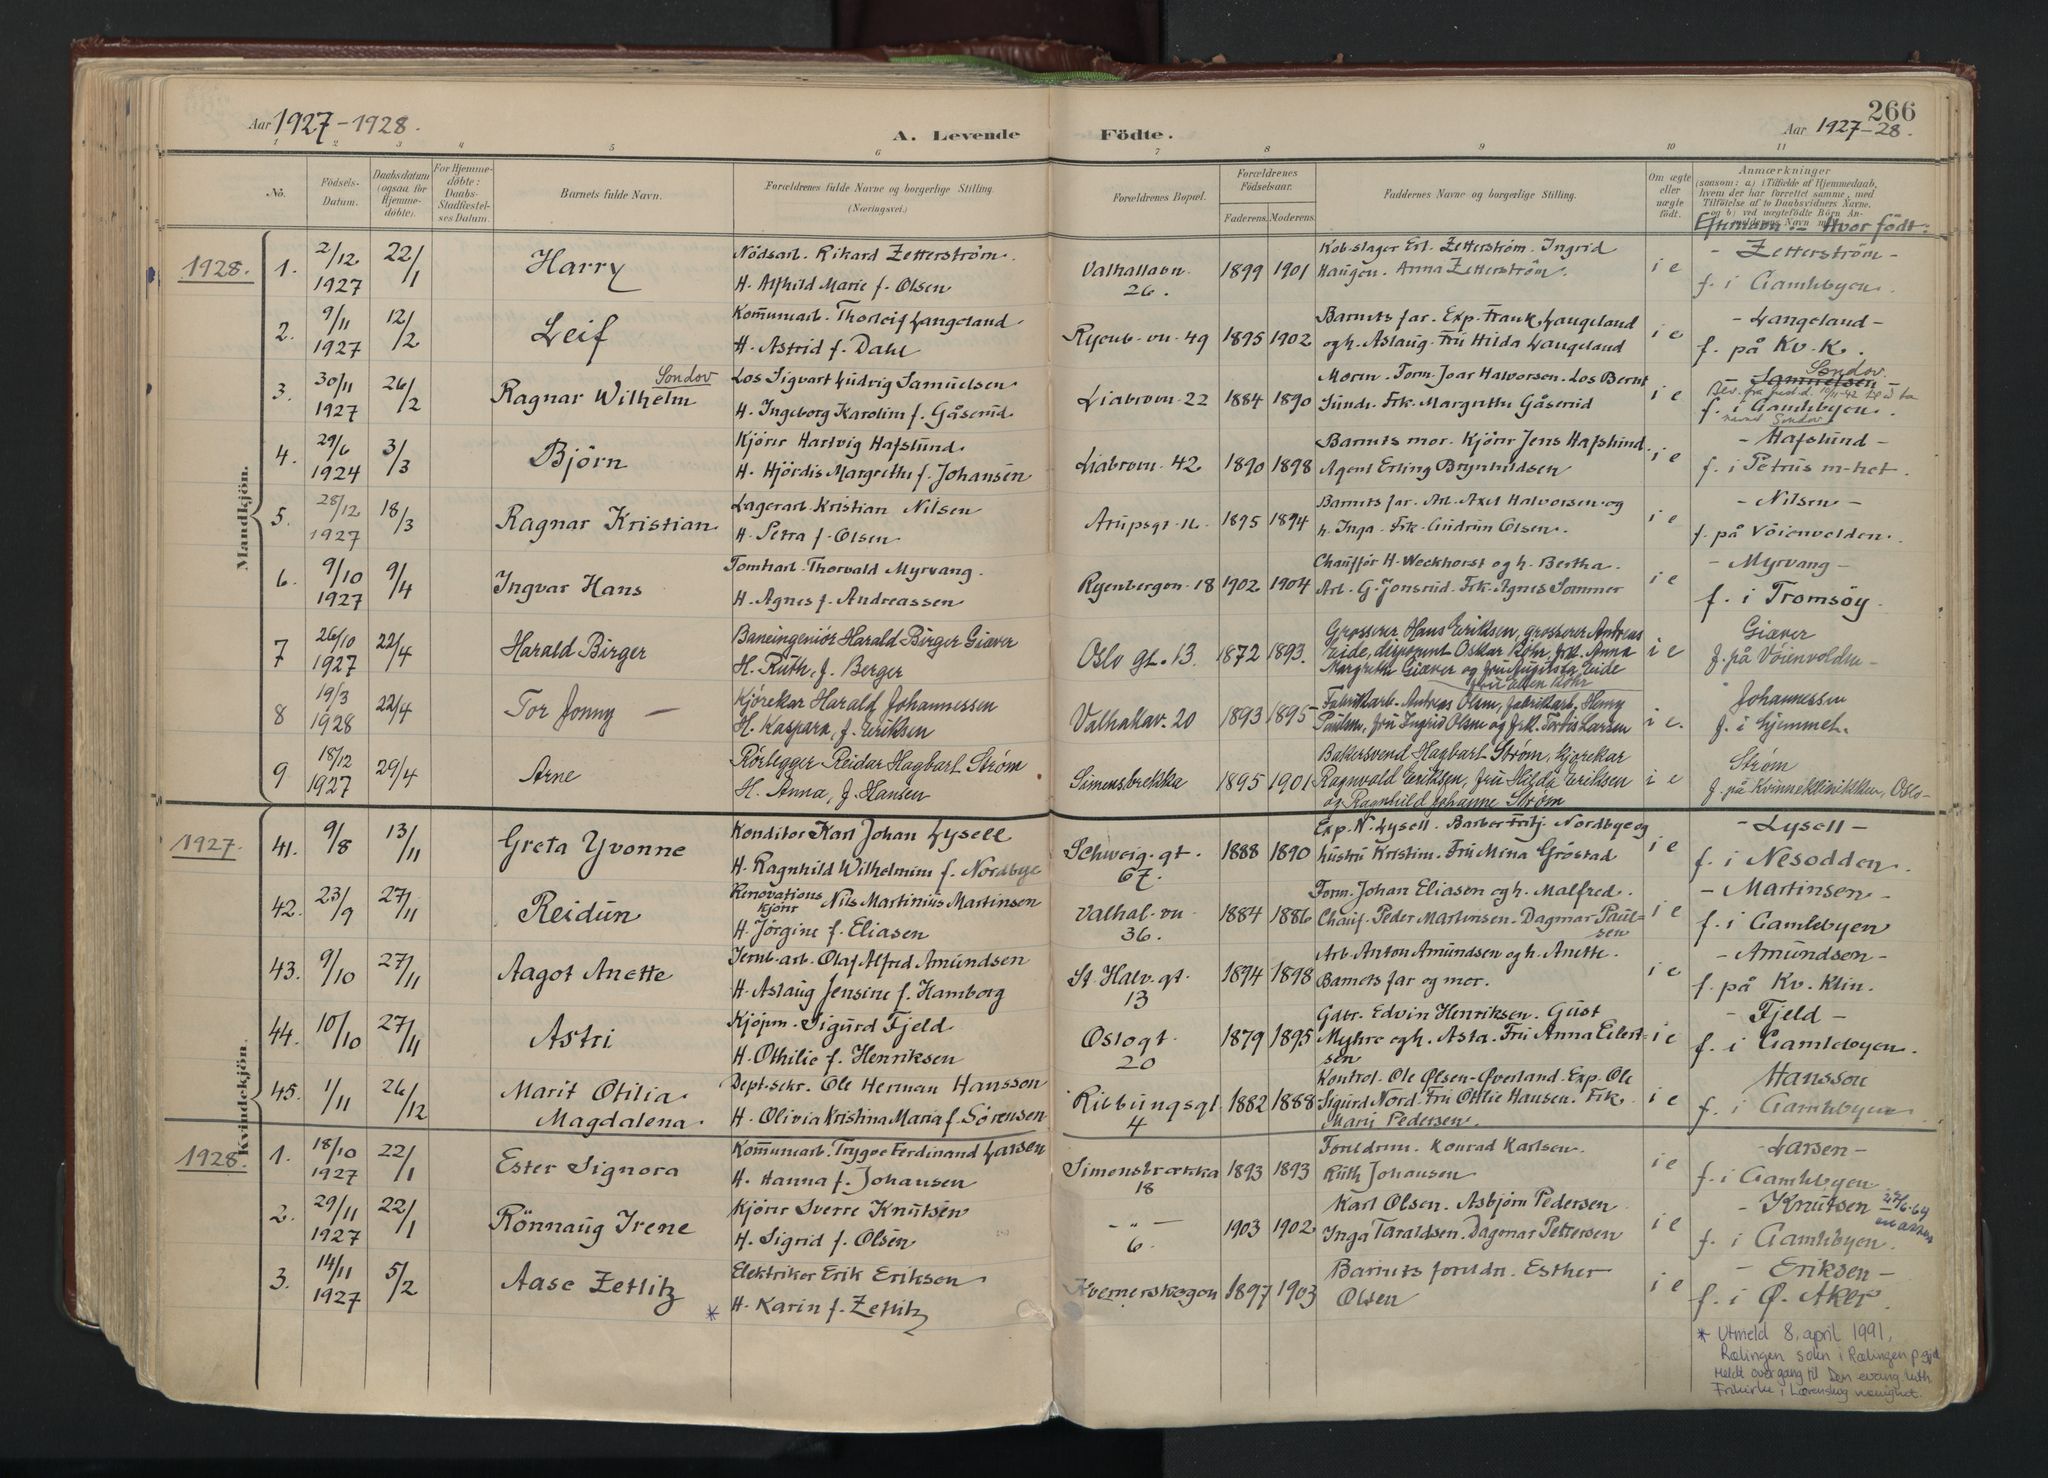 266
Aar 1927-1928.
A. Levende Födte.
Aar 1927-28.
1 2 3 4 5 6 7 8 9 10 11
No.
Födsels-Datum.
Daabsdatum (ogsaa for Hjemme-döbte).
For Hjemme-döbte: Daabs-Stadfæstel-ses Datum.
Barnets fulde Navn.
Forældrenes fulde Navne og borgerlige Stilling.
(Næringsvei.)
Forældrenes Bopæl.
Forældrenes Födselsaar.
Faderens. Moderens.
Faddernes Navne og borgerlige Stilling.
Om ægte eller uægte födt.
Anmærkninger
(saasom: a) i Tilfælde af Hjemmedaab,
hvem der har forrettet samme, med
Tilföielse af to Daabsvidners Navne,
Efternavn :- Hvor født:
Mandkjön.
1928. 1. 2/12 1927 22/1 Harry
Nödsarb. Rikard Zetterström.
H. Alfhild Marie f. Olsen
Valhallavn. 26. 1899 1901
Kobslager Erl. Zetterström. Ingrid
Haugen. Anna Zetterström.
i e
- Zetterström -
f. i Gamlebyen.
2. 9/11 1927 12/2 Leif
Kommunearb. Thorleif Langeland
H. Astrid f. Dahl
Ryenb. vn. 49 1895 1902
Barnets far. Exp. Frank Langeland
og h. Aslaug. Fru Hilda Langeland
i e
- Langeland -
f. på Kv. K.
3. 30/11 1927 26/2 Ragnar Wilhelm Sondov
Los Sigvart Ludvig Samuelsen
H. Ingeborg Karoline f. Gåserud
Liabrovn. 22 1884 1890
Moren. Form. Joar Halvorsen. Los Bernt
Sunde. Frk. Margrethe Gåserud
i e
Sondov.
- Samuelsen -
f. i Gamlebyen.
navnet Sondov
4. 29/6 1924 3/3 Björn
Kjörer Hartvig Hafslund
H. Hjördis Margrethe f. Johansen
Liabrovn. 42 1890 1898
Barnets mor. Kjörer Jens Hafslund
Agent Erling Brynhildsen
i e
- Hafslund -
f. i Petrus m-het.
5. 28/12 1927 18/3 Ragnar Kristian
Lagerarb. Kristian Nilsen
H. Petra f. Olsen
Arupsgt. 11. 1895 1894
Barnets far. Arb. Axel Halvorsen og
h. Inga. Frk. Gudrun Olsen.
i e
- Nilsen -
f. på Vöienvolden.
6. 9/10 1927 9/4 Ingvar Hans
Tomtearb. Thorvald Myrvang.
H. Agnes f. Andreassen
Ryenbergvn. 18 1902 1904
Chauffør H. Weckhorst og h. Bertha.
Arb. G. Jonsrud. Frk. Agnes Sommer
i e
- Myrvang -
f. i Tromsøy.
7 26/10 1927 22/4 Harald Birger
Baneingeniör Harald Birger Giæver
H. Ruth, f. Berger
Oslo gt. 13 1872 1893.
Grosserer Hans Eriksen, grosserer Andreas
Eide, disponent Oskar Röhr, frk. Anna
Margrethe Giæver og fru Augusta Eide
fru Ellen Röhr
i e
Giæver
f. på Vöienvolden -
8 19/3 1928 22/4 Tor Jonny -
Kjörekar Harald Johannessen
H. Kaspara, f. Eriksen
Valhallav. 20 1893 1895
Fabrikarb. Andreas Olsen, fabrikarb. Henry
Paulsen, fru Ingrid Olsen og frk. Torbis Larsen
i e.
Johannessen
f. i hjemmet.
9 18/12 1927 29/4 Arne
Rörlegger Reidar Hagbart Strøm
H. Anna, f. Hansen
Simensbrekka 1895 1901
Bakersvend Hagbart Strøm, Gjörekar
Ragnvald Eriksen, fru Hilda Eriksen
og Ragnhild Johanne Strøm
i e
Strøm
f. på Kvinneklinikken, Oslo -
Kvindekjön.
1927. 41. 9/8 13/11 Greta Yvonne
Konditor Karl Johan Lysell
H. Ragnhild Wilhelmine f. Nordbye
Schweig. gt. 67. 1888 1890
Exp. N. Lysell. Barber Fritj. Nordbye og
hustru Kristine. Fru Mina Gröstad
i e
- Lysell -
f. i Nesodden.
42. 23/9 27/11 Reidun
Renovations kjörer Nils Martinius Martinsen
H. Jörgine f. Eliasen
Valhal. vn. 36. 1884 1886
Form. Johan Eliasen og h. Malfred.
Chauf. Peder Martinsen. Dagmar Paulsen
i e
- Martinsen -
f. i Gamlebyen
43. 9/10 27/11 Aagot Anette
Jernb. arb. Olaf Alfred Amundsen
H. Aslaug Jensine f. Hamborg
St. Halv. gt. 13 1894 1898
Arb. Anton Amundsen og h. Anette.
Barnets far og mor.
i e
- Amundsen -
f. på Kv. Klin.
44. 10/10 27/11 Astri
Kjöpm. Sigurd Fjeld
H. Othilie f. Henriksen
Oslogt. 20 1879 1895
Gdbr. Edvin Henriksen. Gust
Myhre og h. Asta. Fru Anna Eilertsen
i e
- Fjeld -
f. i Gamlebyen.
45. 1/11 26/12 Marit Otilia Magdalena
Dept. sekr. Ole Herman Hansson
H. Olivia Kristina Maria f. Sörensen
Ribbungsgt. 4 1882 1888
Kontrol. Ole Ølsen-Øverland. Exp. Ole
Sigurd Nord. Fru Ottlie Hansen. Frk.
Marie Pedersen.
i e
Hansson
f. i Gamlebyen
1928. 1. 18/10 1927 22/1 Ester Signora
Kommunearb. Trygve Ferdinand Larsen
H. Hanna f. Johansen
Simensbrækka 18 1893 1893
Foreldrene. Konrad Karlsen.
Ruth Johansen
i e
- Larsen -
f. i Gamlebyen
2. 29/11 1927 22/1 Rönnaug Irene
Kjörer Sverre Knutsen
H. Sigrid f. Olsen
- " - 6. 1903 1902
Karl Olsen. Asbjörn Pedersen
Inga Taraldsen. Dagmar Pettersen
i e
- Knutsen
f. i Gamlebyen.
3. 14/11 1927 5/2 Aase Zetlitz *
Elektriker Erik Eriksen
H. Karin f. Zetlitz
Kvernersvegen 1897 1903
Barnets foreldre. Esther
Olsen
i e
- Eriksen -
f. i Ø. Aker.
* Utmeld 8. april 1991,
Rælingen sokn i Rælingen p.gjd
Meldt overgang til Den evang luth
Frikirke i Lørenskog menighet.